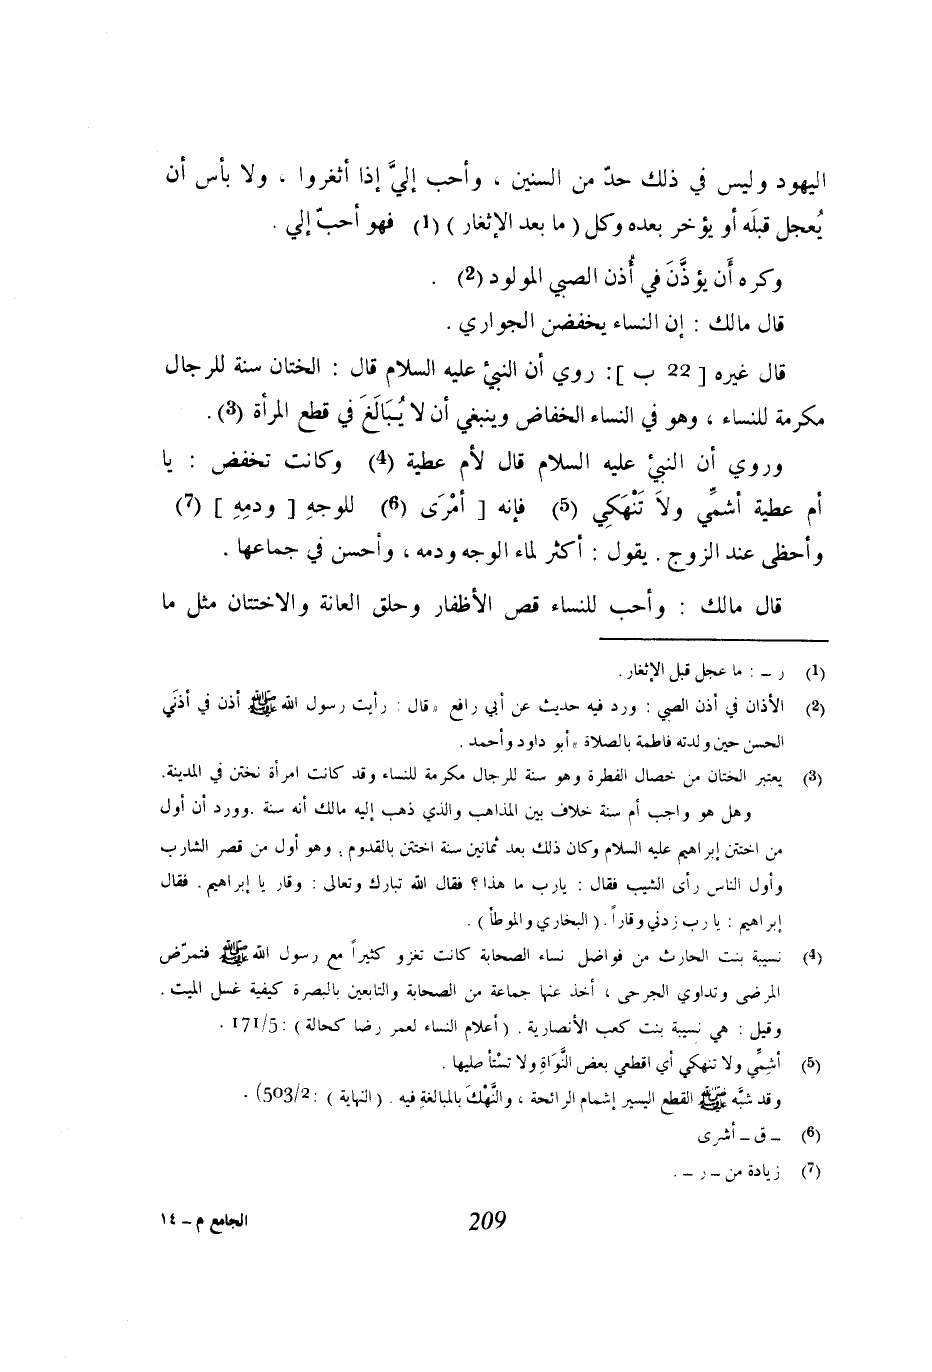 اليهود وليس في ذلك حدّ من السنين ، وأحب إليَّ إذا أثغروا ، ولا بأس أن
يُعجل قبلَه أو يؤخر بعده وكل ( ما بعد الإثغار ) (1) فهو أحبّ إلي .
وكره أَن يؤذَّنَ في أُذن الصبي المولود (2) .
قال مالك : إن النساء يخفضن الجواري .
قال غيره [ 22 ب ]: روي أن النبيّ عليه السلام قال : الختان سنة للرجال
مكرمة للنساء ، وهو في النساء الخفاض وينبغي أن لا يُبَالَغَ في قطع المرأة (3).
وروي أن النبيّ عليه السلام قال لأم عطية (4) وكانت تخفض : يا
أم عطية أشمِّي ولاَ تَنْهَكِي (5) فإنه [ أمْرَى (6) للوجهِ [ ودمِهِ ] (7)
وأحظى عند الزوج . يقول : أكثر لماء الوجه ودمه ، وأحسن في جماعها .
قال مالك : وأحب للنساء قص الأظفار وحلق العانة والاختتان مثل ما
(1) ر – : ما عجل قبل الإثغار .
(2) الأذان في أذن الصي : ورد فيه حديث عن أبي رافع «قال : رأيت رسول الله ﷺ أذن في أذنَي
الحسن حين ولدته فاطمة بالصلاة » أبو داود وأحمد .
(3) يعتبر الختان من خصال الفطرة وهو سنة للرجال مكرمة للنساء وقد كانت امرأة نختن في المدينة.
وهل هو واجب أم سنة خلاف بين المذاهب والذي ذهب إليه مالك أنه سنة .وورد أن أول
من اختتن إبراهيم عليه السلام وكان ذلك بعد ثمانين سنة اختتن بالقدوم . وهو أول من قصر الشارب
وأول الناس رأى الشيب فقال : يارب ما هذا ؟ فقال الله تبارك وتعالى : وقار يا إبراهيم . فقال
إبراهيم : يا رب زدني وقاراً . ( البخاري والموطأ ) .
(4) نسيبة بنت الحارث من فواضل نساء الصحابة كانت تغزو كثيراً مع رسول الله ﷺ فتمرّض
المرضى وتداوي الجرحى ، أخذ عنها جماعة من الصحابة والتابعين بالبصرة كيفية غسل الميت .
وقيل : هي نسيبة بنت كعب الأنصارية . ( أعلام النساء لعمر رضا كحالة ) : 171/5 .
(5) أشمِّي ولا تنهكي أي اقطعي بعض النَّوَاةِ ولا تسْتأ صليها .
وقد شبَّه ﷺ القطع اليسير إشمام الرائحة ، والنَّهْكَ بالمبالغةِ فيه . ( النهاية ) : 503/2) .
(6) – ق – أشرى
(7) زيادة من – ر – .
209
الجامع م – ١٤